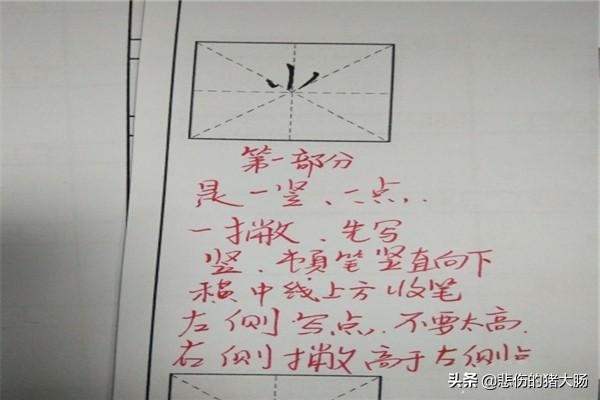 ⺌
第一部分
是一竖、二点.
一撇、先写
竖、顿笔竖直向下
横中线上方收笔
左侧写点.不要太高.
右侧撇高于左侧点
头条 @悲伤的猪大肠